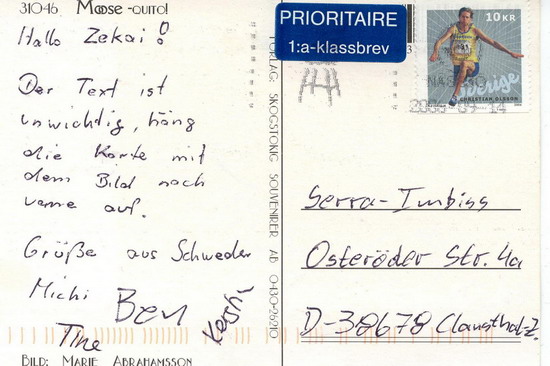 31046 Moose-quito!
Hallo Zekai!
Der Text ist
unwichtig, häng
die Karte mit
dem Bild nach
vorne auf.
Grüße aus Schweden
Michi Ben Kerstin
Tine
BILD: MARIE ABRAHAMSSON
FÖRLAG: SKOGSTOKIG SOUVENIRER AB 0430-26210
PRIORITAIRE
1:a-klassbrev
10 KR
Sverige
CHRISTIAN OLSSON
Serra-Imbiss
Osteröder Str. 4a
D-38678 Clausthal-Z.